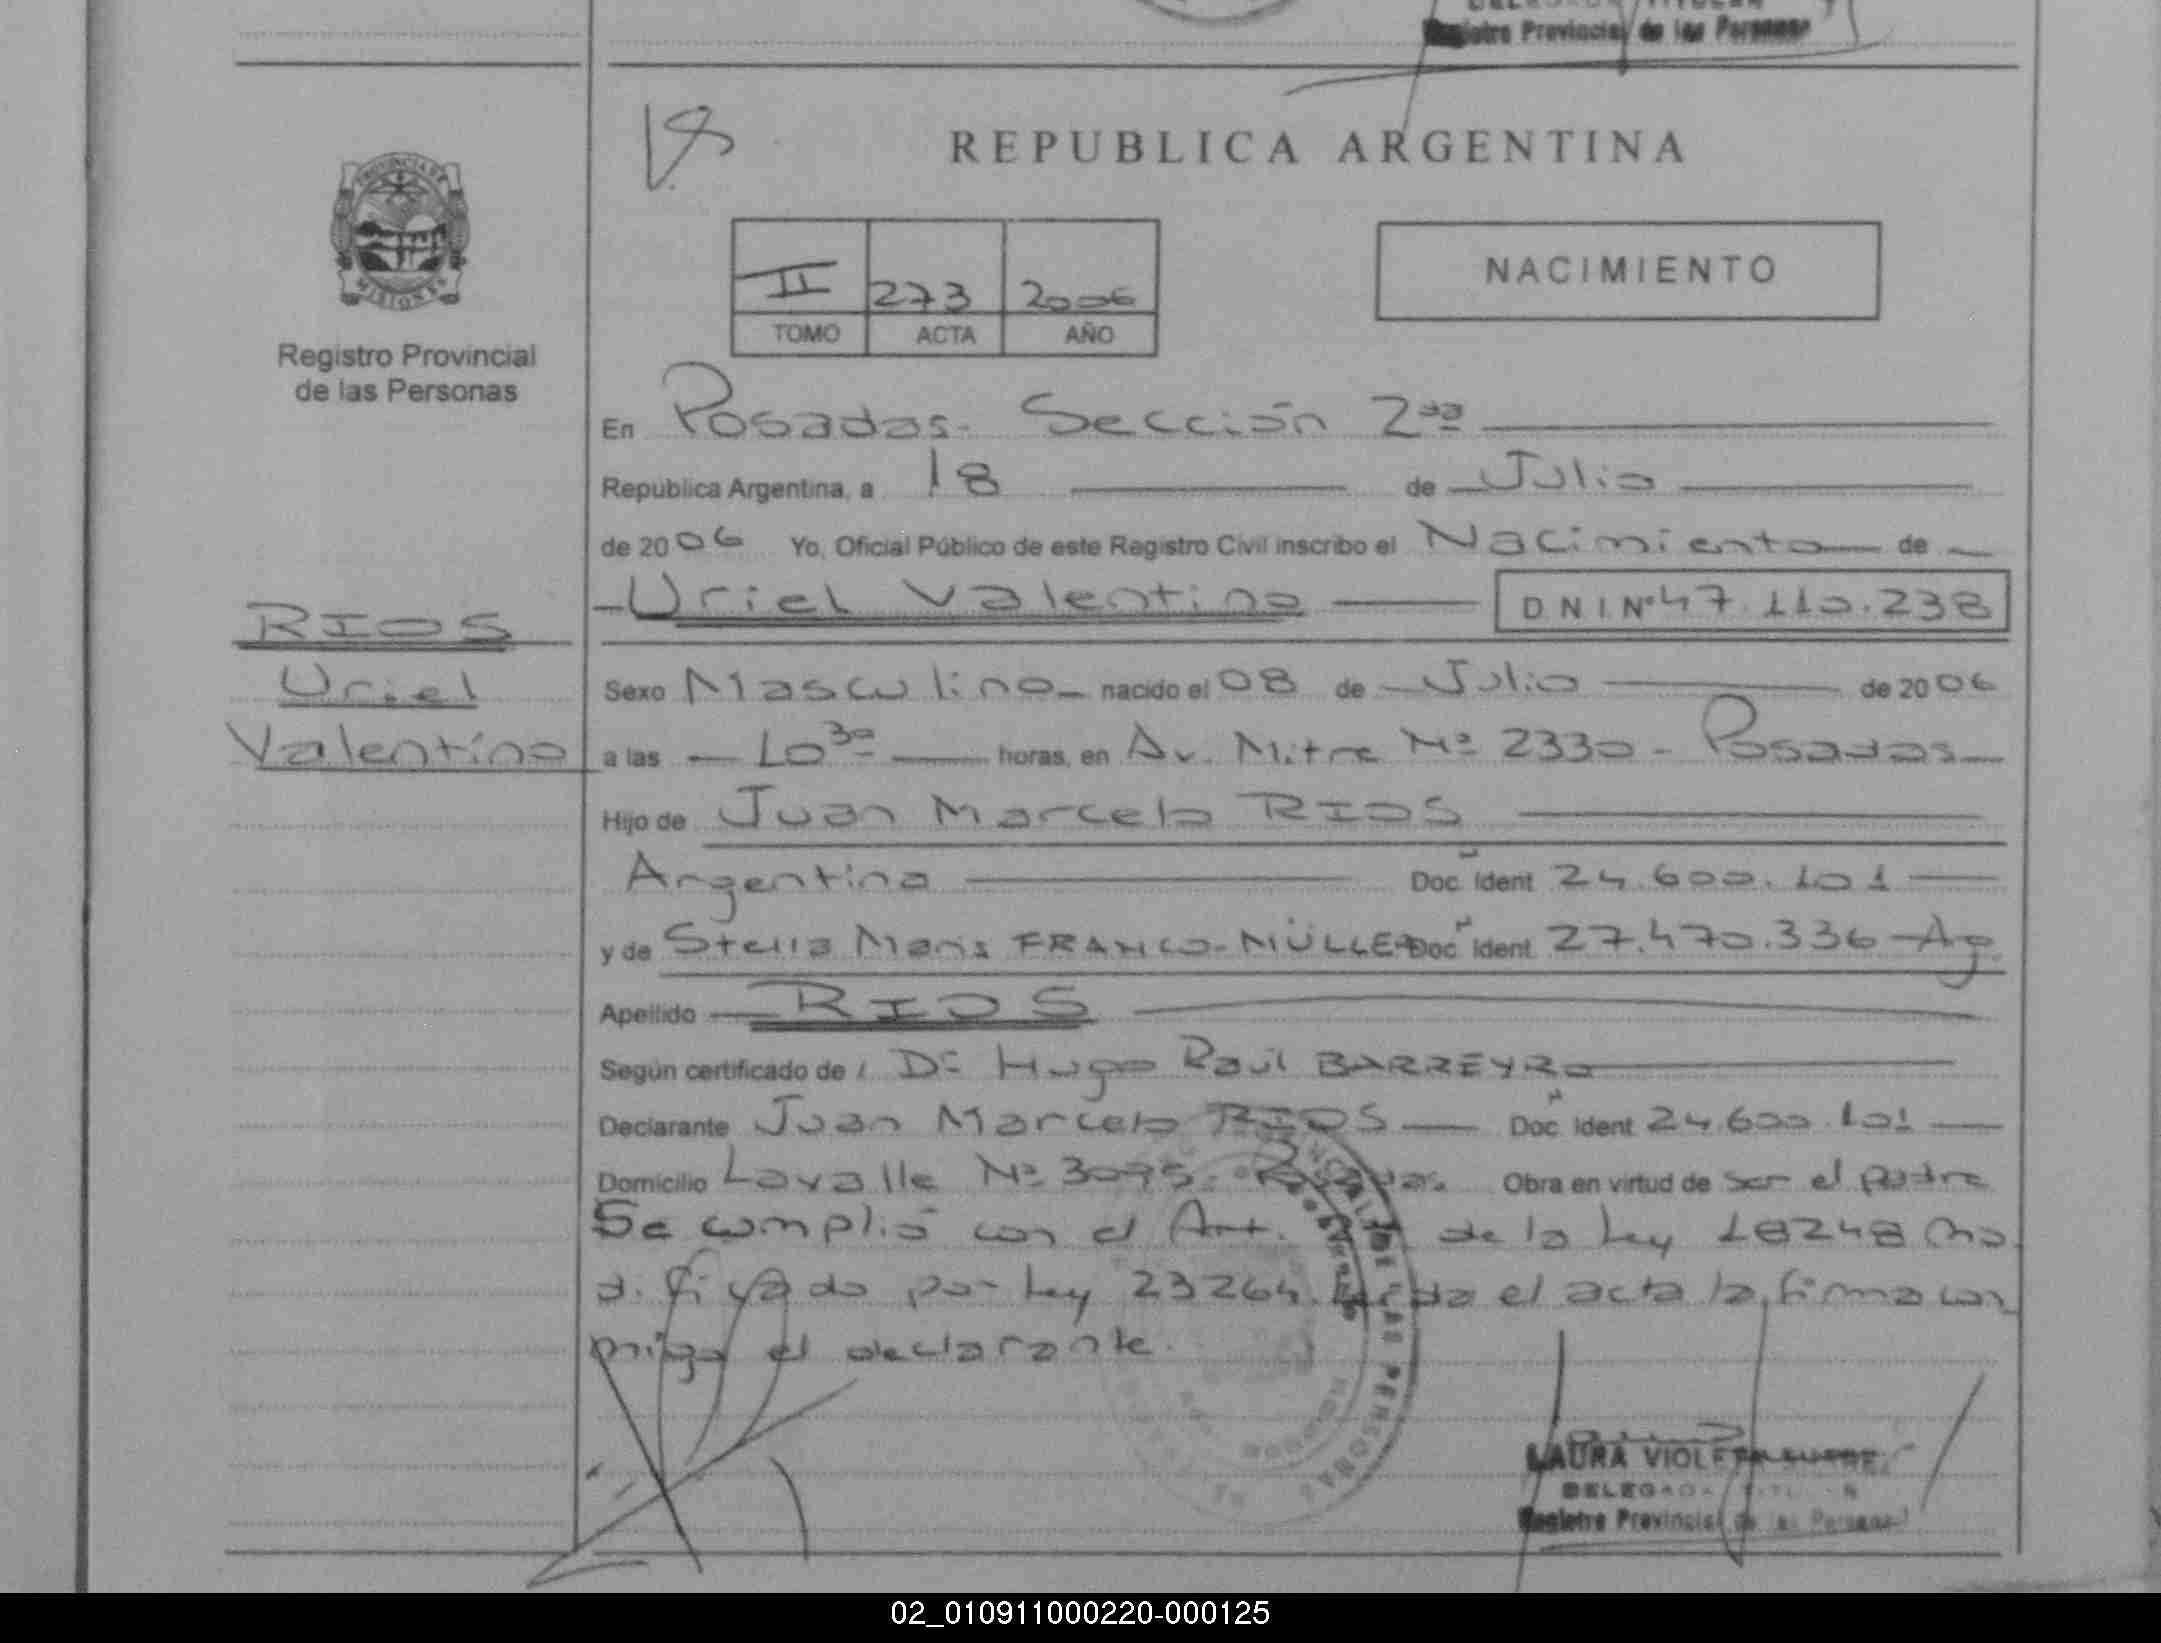 Registro Provincial de las Personas
REPUBLICA ARGENTINA
PROVINCIA DE
MISIONES
Registro Provincial
de las Personas
II 273 2006
TOMO ACTA AÑO
NACIMIENTO
En Posadas - Sección 2da
República Argentina, a 18 de Julio
de 2006 Yo, Oficial Público de este Registro Civil inscribo el Nacimiento de
Uriel Valentino D N I. Nº 47.110.238
RIOS
Uriel
Valentino
Sexo Masculino nacido el 08 de Julio de 2006
a las 10 30 horas, en Av. Mitre Nº 2330 - Posadas
Hijo de Juan Marcelo RIOS
Argentina Doc. Ident 24.600.101
y de Stella Maris FRANCO-MÜLLER Doc. Ident. 27.470.336 - Ag.
Apellido RIOS
Según certificado de Dr Hugo Raúl BARREYRO
Declarante Juan Marcelo RIOS Doc. Ident 24.600.101
Domicilio Lavalle Nº 3095 - Posadas. Obra en virtud de ser el padre
Se cumplió con el Art. de la Ley 18248 mo
dificado por Ley 23264. Leída el acta la firma con
migo el declarante.
DE LAS PERSONAS
LAURA VIOLETA
DELEGADA TITULAR
Registro Provincial de las Personas
02_010911000220-000125